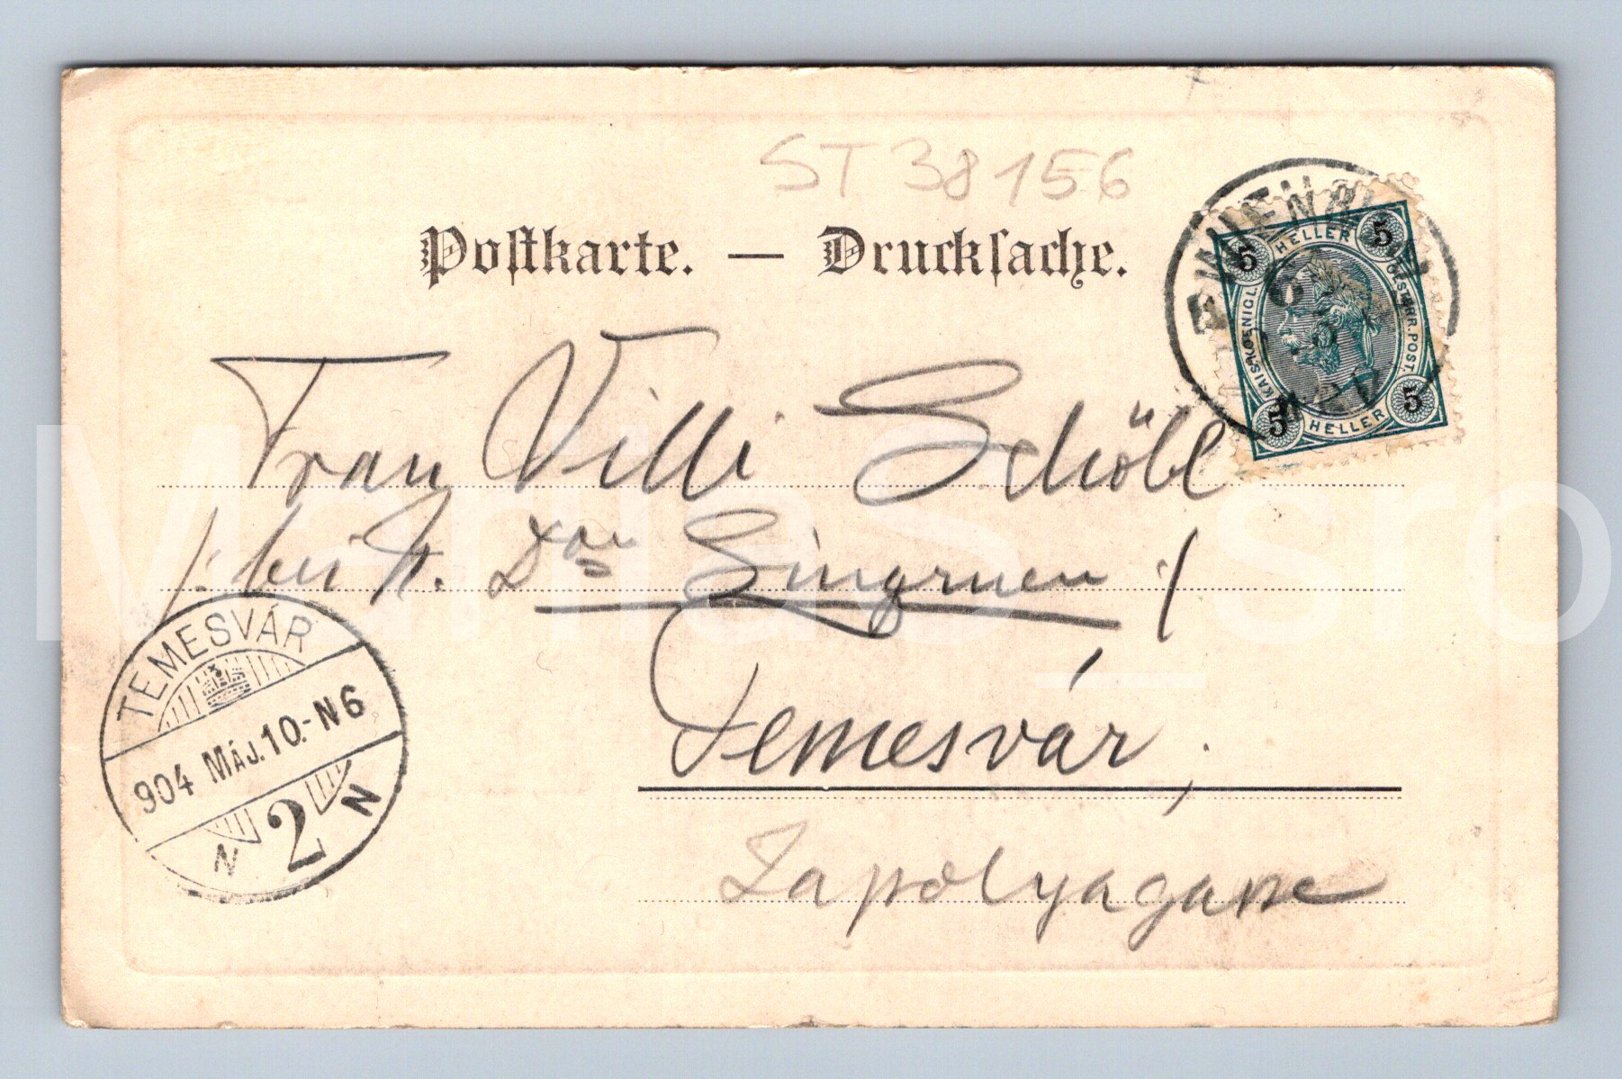 ST 38156
Postkarte. — Drucksache.
5 HELLER 5
KAIS. KOENIGL. OESTERR. POST.
5 HELLER 5
Frau Villi Schöbl
/: bei H. Dr Singruen :/
Temesvár,
Zapolyagasse
TEMESVÁR
904 MÁJ. 10.-N6
N 2 N